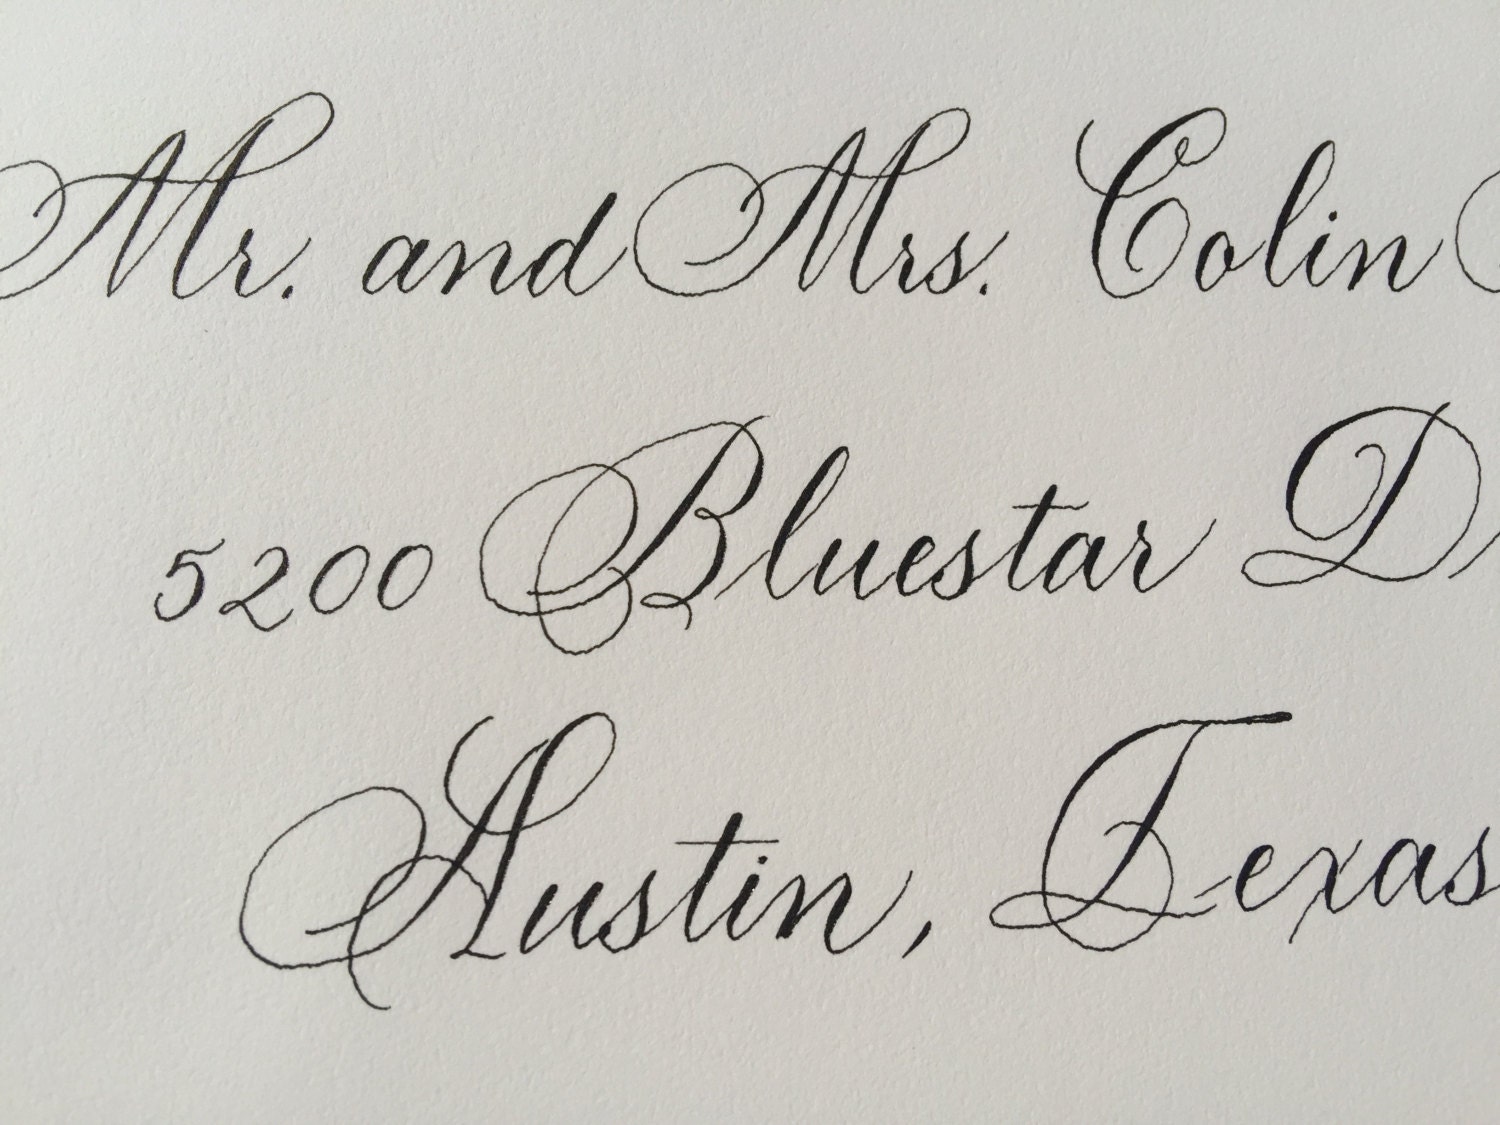 Mr. and Mrs. Colin
5200 Bluestar D
Austin, Texas